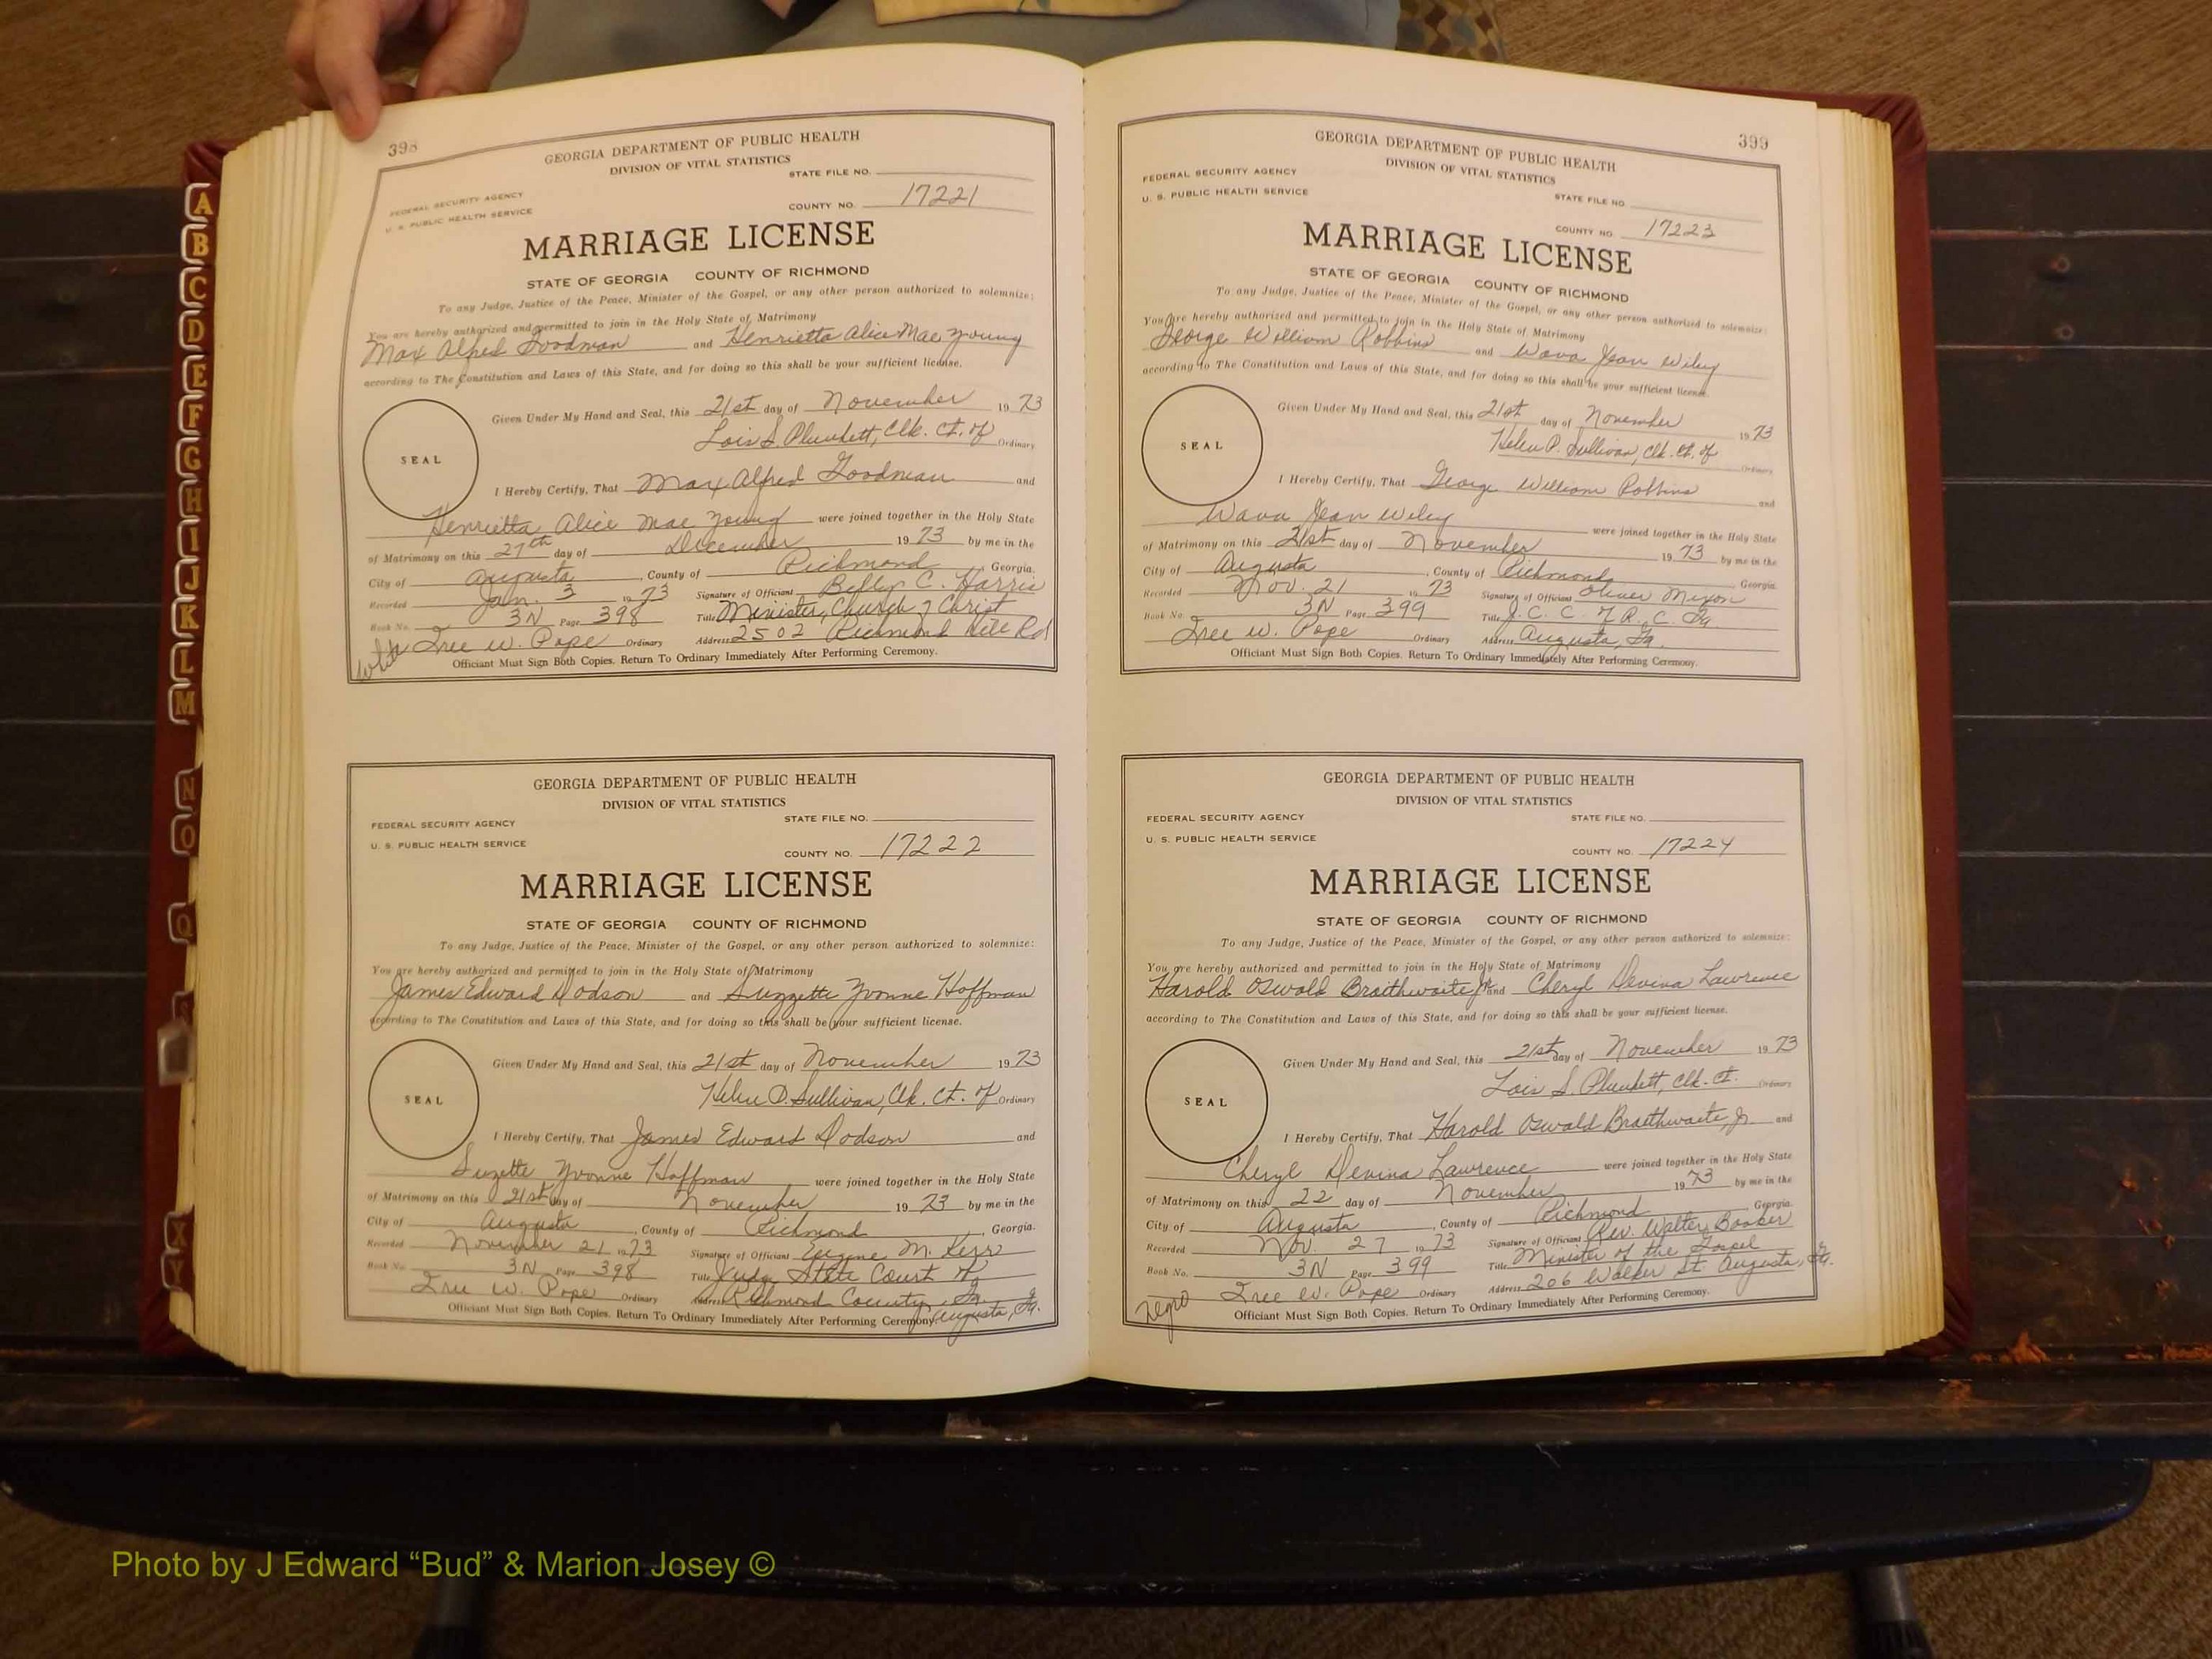 398
GEORGIA DEPARTMENT OF PUBLIC HEALTH
DIVISION OF VITAL STATISTICS
STATE FILE NO.
FEDERAL SECURITY AGENCY
U. S. PUBLIC HEALTH SERVICE
COUNTY NO. 17221
MARRIAGE LICENSE
STATE OF GEORGIA COUNTY OF RICHMOND
To any Judge, Justice of the Peace, Minister of the Gospel, or any other person authorized to solemnize:
You are hereby authorized and permitted to join in the Holy State of Matrimony
Max Alfred Goodman and Henrietta Alice Mae Young
according to The Constitution and Laws of this State, and for doing so this shall be your sufficient license.
Given Under My Hand and Seal, this 21st day of November 1973
Lois S. Plunkett, Clk. Ct. of Ordinary
SEAL
I Hereby Certify, That Max Alfred Goodman and
Henrietta Alice Mae Young were joined together in the Holy State
of Matrimony on this 27th day of December 1973 by me in the
City of Augusta, County of Richmond, Georgia.
Recorded Jan. 3 1973 Signature of Officiant Billy C. Harris
Book No. 3N Page 398 Title Minister, Church of Christ
Tree W. Pope Ordinary Address 2502 Richmond Hill Rd
White
Officiant Must Sign Both Copies. Return To Ordinary Immediately After Performing Ceremony.
GEORGIA DEPARTMENT OF PUBLIC HEALTH
DIVISION OF VITAL STATISTICS
STATE FILE NO.
FEDERAL SECURITY AGENCY
U. S. PUBLIC HEALTH SERVICE
COUNTY NO. 17222
MARRIAGE LICENSE
STATE OF GEORGIA COUNTY OF RICHMOND
To any Judge, Justice of the Peace, Minister of the Gospel, or any other person authorized to solemnize:
You are hereby authorized and permitted to join in the Holy State of Matrimony
James Edward Dodson and Suzzette Yvonne Hoffman
according to The Constitution and Laws of this State, and for doing so this shall be your sufficient license.
Given Under My Hand and Seal, this 21st day of November 1973
Helen P. Sullivan, Clk. Ct. of Ordinary
SEAL
I Hereby Certify, That James Edward Dodson and
Suzette Yvonne Hoffman were joined together in the Holy State
of Matrimony on this 21st day of November 1973 by me in the
City of Augusta, County of Richmond, Georgia.
Recorded November 21 1973 Signature of Officiant Eugene M. Kerr
Book No. 3N Page 398 Title Judge State Court of
Tree W. Pope Ordinary Address Richmond County, Ga.
Officiant Must Sign Both Copies. Return To Ordinary Immediately After Performing Ceremony. Augusta, Ga.
399
GEORGIA DEPARTMENT OF PUBLIC HEALTH
DIVISION OF VITAL STATISTICS
FEDERAL SECURITY AGENCY
U. S. PUBLIC HEALTH SERVICE
STATE FILE NO.
COUNTY NO. 17223
MARRIAGE LICENSE
STATE OF GEORGIA COUNTY OF RICHMOND
To any Judge, Justice of the Peace, Minister of the Gospel, or any other person authorized to solemnize:
You are hereby authorized and permitted to join in the Holy State of Matrimony
George William Robbins and Wava Jean Wiley
according to The Constitution and Laws of this State, and for doing so this shall be your sufficient license.
Given Under My Hand and Seal, this 21st day of November 1973
Helen P. Sullivan, Clk. Ct. of Ordinary
SEAL
I Hereby Certify, That George William Robbins and
Wava Jean Wiley were joined together in the Holy State
of Matrimony on this 21st day of November 1973 by me in the
City of Augusta, County of Richmond, Georgia.
Recorded Nov. 21 1973 Signature of Officiant Oliver Mixon
Book No. 3N Page 399 Title J. C. C. of R. C. Ga.
Tree W. Pope Ordinary Address Augusta, Ga.
Officiant Must Sign Both Copies. Return To Ordinary Immediately After Performing Ceremony.
GEORGIA DEPARTMENT OF PUBLIC HEALTH
DIVISION OF VITAL STATISTICS
FEDERAL SECURITY AGENCY
STATE FILE NO.
U. S. PUBLIC HEALTH SERVICE
COUNTY NO. 17224
MARRIAGE LICENSE
STATE OF GEORGIA COUNTY OF RICHMOND
To any Judge, Justice of the Peace, Minister of the Gospel, or any other person authorized to solemnize:
You are hereby authorized and permitted to join in the Holy State of Matrimony
Harold Oswald Braithwaite Jr. and Cheryl Devina Lawrence
according to The Constitution and Laws of this State, and for doing so this shall be your sufficient license.
Given Under My Hand and Seal, this 21st day of November 1973
Lois S. Plunkett, Clk. Ct. Ordinary
SEAL
I Hereby Certify, That Harold Oswald Braithwaite, Jr. and
Cheryl Devina Lawrence were joined together in the Holy State
of Matrimony on this 22 day of November 1973 by me in the
City of Augusta, County of Richmond Georgia.
Recorded Nov. 27 1973 Signature of Officiant Rev. Walter Booker
Book No. 3N Page 399 Title Minister of the Gospel
Tree W. Pope Ordinary Address 206 Walker St. Augusta, Ga.
Negro
Officiant Must Sign Both Copies. Return To Ordinary Immediately After Performing Ceremony.
A
B
C
D
E
F
G
H
I
J
K
L
M
N
O
Q
S
X
Y
Photo by J Edward “Bud” & Marion Josey ©